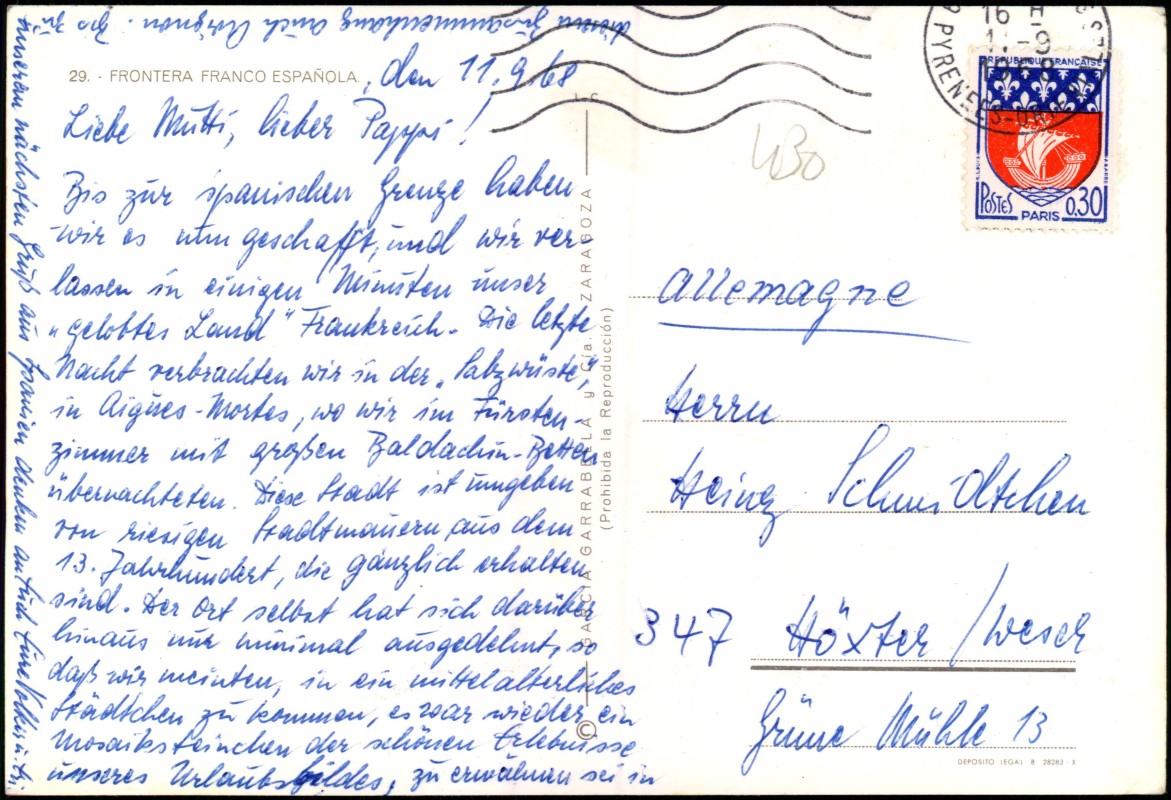 29. - FRONTERA FRANCO ESPAÑOLA
, den 11.9.68
Liebe Mutti, lieber Pappi!
Bis zur spanischen Grenze haben
wir es nun geschafft, und wir ver-
lassen in einigen Minuten unser
„gelobtes Land" Frankreich. Die letzte
Nacht verbrachten wir in der „Salzwüste",
in Aigues-Mortes, wo wir im Fürsten-
zimmer mit großen Baldachin-Betten
übernachteten. Diese Stadt ist umgeben
von riesigen Stadtmauern aus dem
13. Jahrhundert, die gänzlich erhalten
sind. Der Ort selbst hat sich darüber
hinaus nur minimal ausgedehnt, so
daß wir meinten, in ein mittelalterliches
Städtchen zu kommen, es war wieder ein
Mosaiksteinchen der schönen Erlebnisse
unseres Urlaubsbildes, zu erwähnen sei in
diesem Zusammenhang auch Avignon. Bis zu
unseren nächsten Gruß aus Spanien denken an Euch Eure Volker u.
GARCIA GARRABELLA y Cía. ZARAGOZA
(Prohibida la Reproducción)
©
430
16 H
11-9
1968
PYRENEES-ORIENTALES
REPUBLIQUE FRANÇAISE
POSTES
PARIS
0,30
Allemagne
Herrn
Heinz Schmidtchen
347 Höxter/Weser
Grüne Mühle 13
DEPOSITO LEGAL B 28283 - X